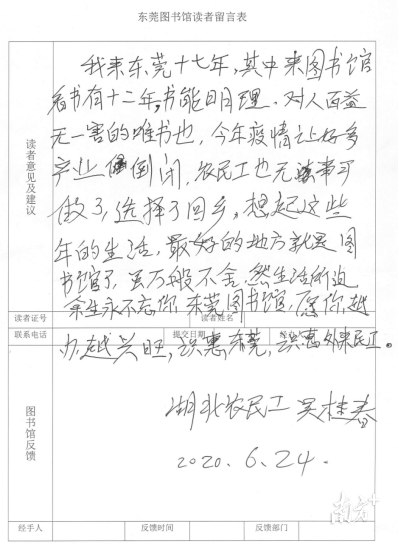 东莞图书馆读者留言表
读者意见及建议
我来东莞十七年，其中来图书馆
看书有十二年，书能明理，对人百益
无一害的唯书也，今年疫情让好多
产业倒闭，农民工也无事可
做了，选择了回乡，想起这些
年的生活，最好的地方就是图
书馆了，虽万般不舍，然生活所迫
余生永不忘你，东莞图书馆，愿你越
办越兴旺，识惠东莞，识惠外来民工。
读者证号
读者姓名
联系电话
提交日期
图书馆反馈
湖北农民工 吴桂春
2020. 6. 24.
南方+
经手人
反馈时间
反馈部门